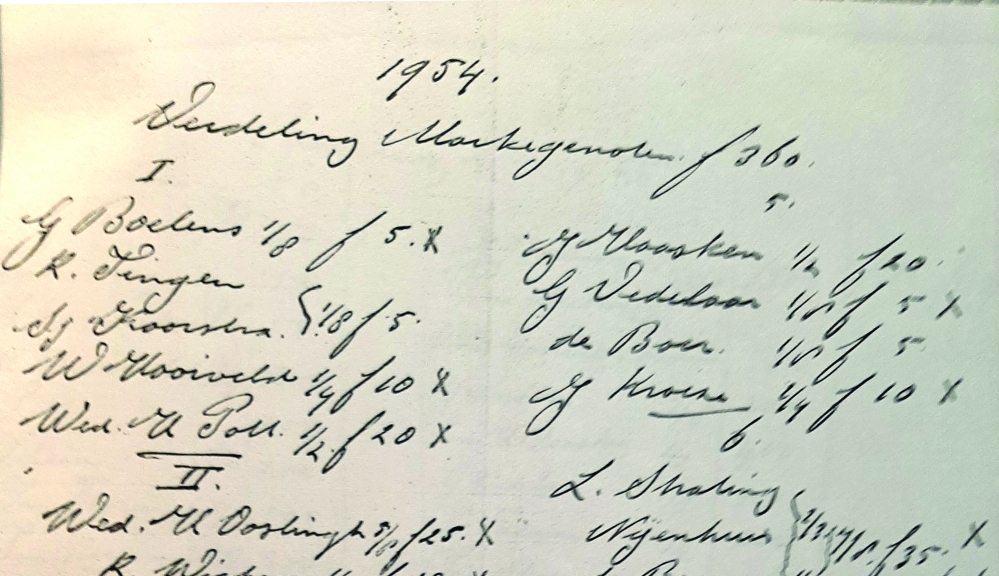 1954.
Verdeling Markegenoten f 360.
I.
G Boelens 1/8 f 5. X
R. Tingen
1/8 f 5.
W Mooiveld 1/4 f 10 X
Wed. H Poll. 1/2 f 20 X
II.
Wed. H Oostingh 5/8 f 25. X
5.
1/2 f 20.
G Vedelaar 1/8 f 5 X
de Boer. 1/8 f 5.
Kroeze 1/4 f 10 X
6.
L. Strating
Nijenhuis f 35. X